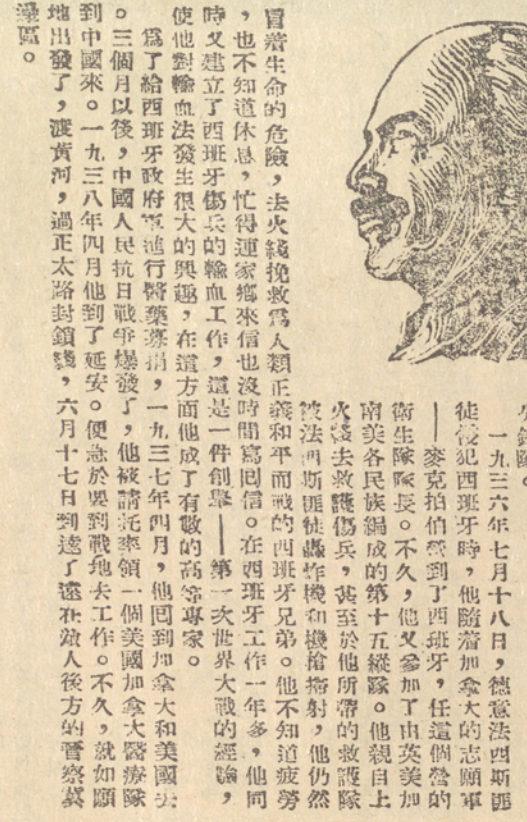 一九三六年七月十八日，德意法西斯匪
徒侵犯西班牙時，他隨着加拿大的志願軍
——麥克拍伯營到了西班牙，任這個營的
衛生隊隊長。不久，他又參加了由英美加
南美各民族編成的第十五縱隊。他親自上
火綫去救護傷兵，甚至於他所帶的救護隊
被法西斯匪徒轟炸機和機槍掃射，他仍然
冒着生命的危險，去火綫挽救爲人類正義和平而戰的西班牙兄弟。他不知道疲勞
，也不知道休息，忙得連家鄉來信也沒時間寫囘信。在西班牙工作一年多，他同
時又建立了西班牙傷兵的輸血工作，這是一件創舉——第一次世界大戰的經論，
使他對輸血法發生很大的興趣，在這方面他成了有數的高等專家。
爲了給西班牙政府軍進行醫藥募捐，一九三七年四月，他囘到加拿大和美國去
。三個月以後，中國人民抗日戰爭爆發了，他被請托率領一個美國加拿大醫療隊
到中國來。一九三八年四月他到了延安。便急於要到戰地去工作。不久，就如願
地出發了，渡黃河，過正太路封鎖綫，六月十七日到達了遠在敵人後方的晉察冀
邊區。